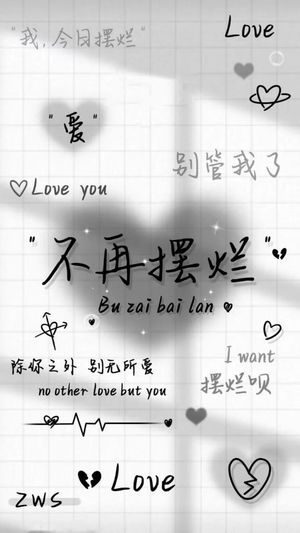 "我,今日摆烂"
Love
"爱"
别管我了
Love you
"不再摆烂"
Bu zai bai lan
I want
除你之外 别无所爱
摆烂呗
no other love but you
Love
ZWS